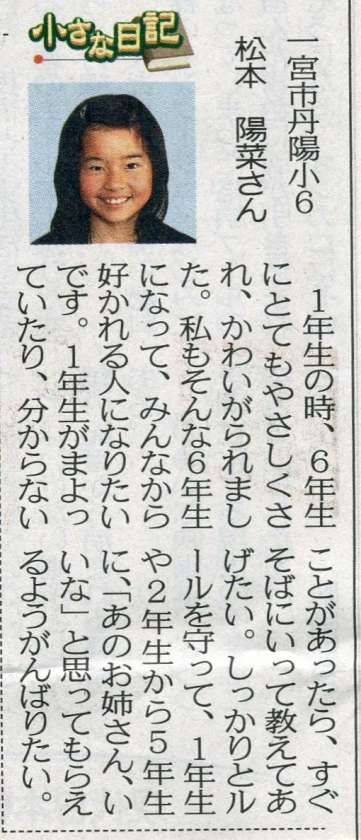 小さな日記
一宮市丹陽小6
松本　陽菜さん
1年生の時、6年生
にとてもやさしくさ
れ、かわいがられまし
た。私もそんな6年生
になって、みんなから
好かれる人になりたい
です。1年生がまよっ
ていたり、分からない
ことがあったら、すぐ
そばにいって教えてあ
げたい。しっかりとル
ールを守って、1年生
や2年生から5年生
に、「あのお姉さん、い
いな」と思ってもらえ
るようがんばりたい。